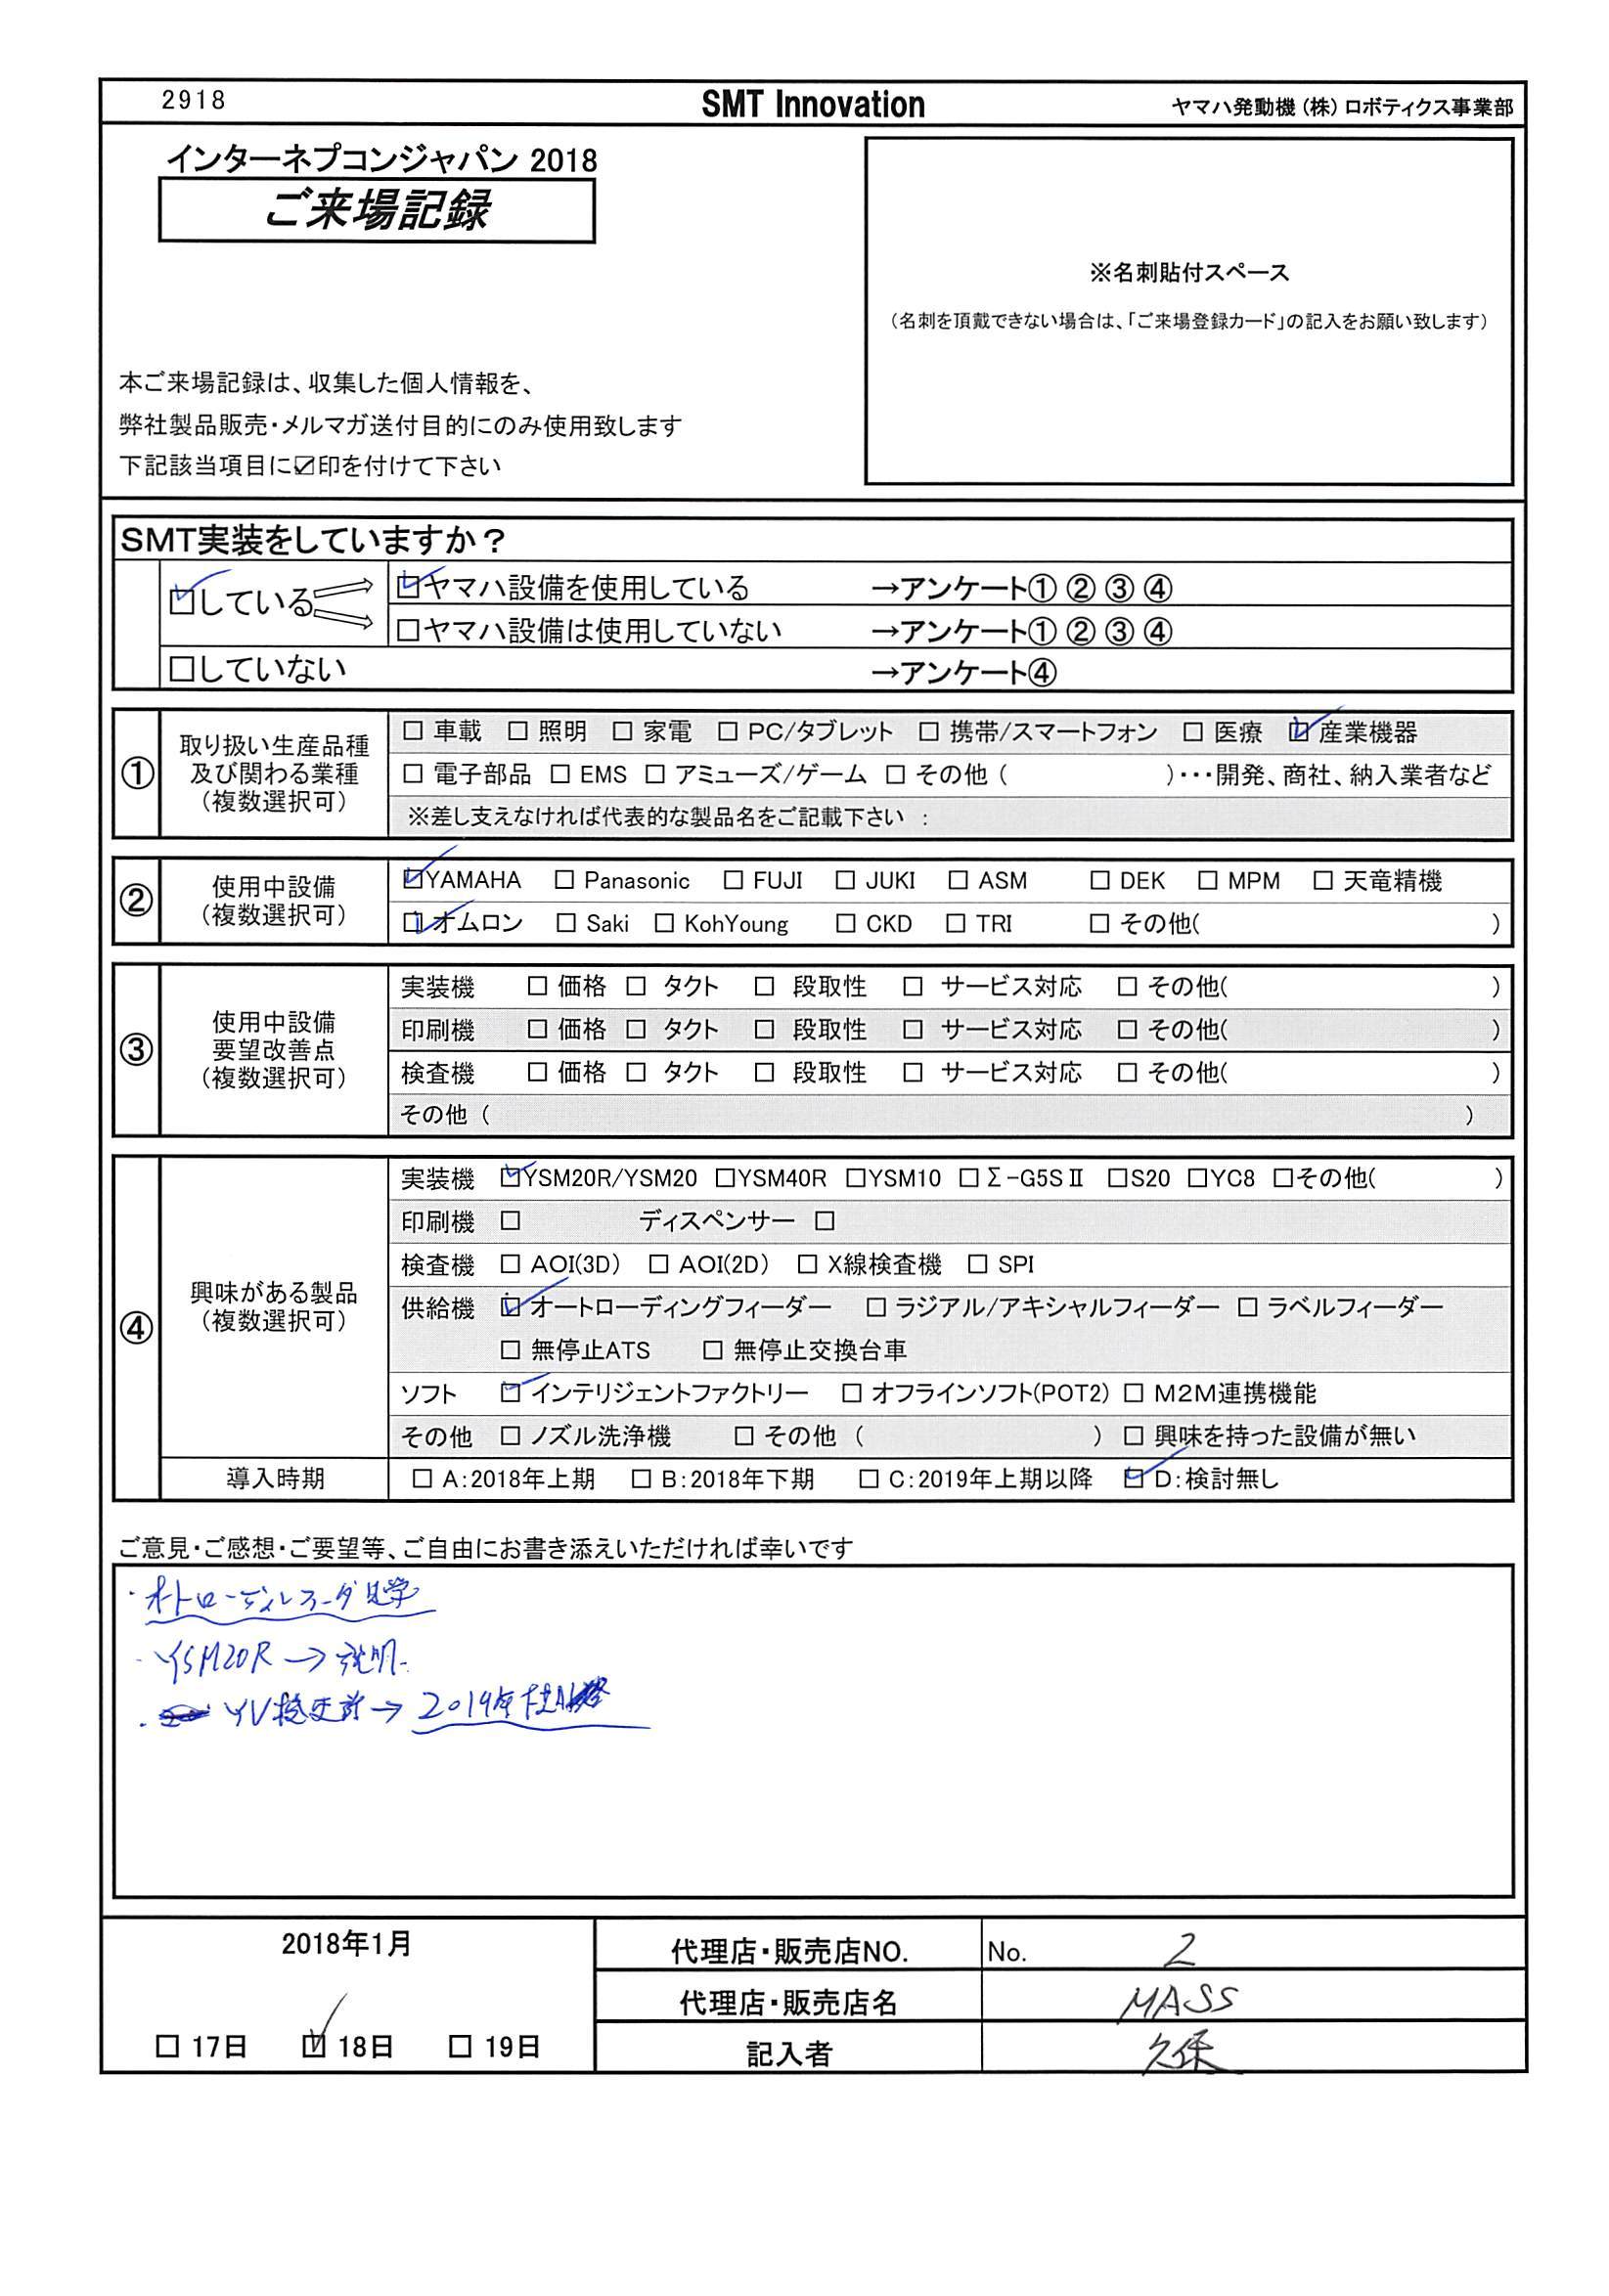 2918 SMT Innovation ヤマハ発動機（株）ロボティクス事業部
インターネプコンジャパン 2018
ご来場記録
※名刺貼付スペース
（名刺を頂戴できない場合は、「ご来場登録カード」の記入をお願い致します）
本ご来場記録は、収集した個人情報を、
弊社製品販売・メルマガ送付目的にのみ使用致します
下記該当項目に☑印を付けて下さい
SMT実装をしていますか？
☑している ☑ヤマハ設備を使用している →アンケート① ② ③ ④
□ヤマハ設備は使用していない →アンケート① ② ③ ④
□していない →アンケート④
① 取り扱い生産品種
及び関わる業種
（複数選択可）
□ 車載 □ 照明 □ 家電 □ PC/タブレット □ 携帯/スマートフォン □ 医療 ☑ 産業機器
□ 電子部品 □ EMS □ アミューズ/ゲーム □ その他（ ）・・・開発、商社、納入業者など
※差し支えなければ代表的な製品名をご記載下さい ：
② 使用中設備
（複数選択可）
☑YAMAHA □ Panasonic □ FUJI □ JUKI □ ASM □ DEK □ MPM □ 天竜精機
☑オムロン □ Saki □ KohYoung □ CKD □ TRI □ その他( )
③ 使用中設備
要望改善点
（複数選択可）
実装機 □ 価格 □ タクト □ 段取性 □ サービス対応 □ その他( )
印刷機 □ 価格 □ タクト □ 段取性 □ サービス対応 □ その他( )
検査機 □ 価格 □ タクト □ 段取性 □ サービス対応 □ その他( )
その他（ ）
④ 興味がある製品
（複数選択可）
実装機 ☑YSM20R/YSM20 □YSM40R □YSM10 □Σ-G5SⅡ □S20 □YC8 □その他( )
印刷機 □ ディスペンサー □
検査機 □ AOI(3D) □ AOI(2D) □ X線検査機 □ SPI
供給機 ☑ オートローディングフィーダー □ ラジアル/アキシャルフィーダー □ ラベルフィーダー
□ 無停止ATS □ 無停止交換台車
ソフト ☑ インテリジェントファクトリー □ オフラインソフト(POT2) □ M2M連携機能
その他 □ ノズル洗浄機 □ その他（ ） □ 興味を持った設備が無い
導入時期 □ A:2018年上期 □ B:2018年下期 □ C:2019年上期以降 ☑ D:検討無し
ご意見・ご感想・ご要望等、ご自由にお書き添えいただければ幸いです
・オートローディングフィーダ見学
・YSM20R → 説明
・YV機更新→ 2019年
2018年1月
□ 17日 ☑ 18日 □ 19日
代理店・販売店NO. No. 2
代理店・販売店名 MASS
記入者 久保